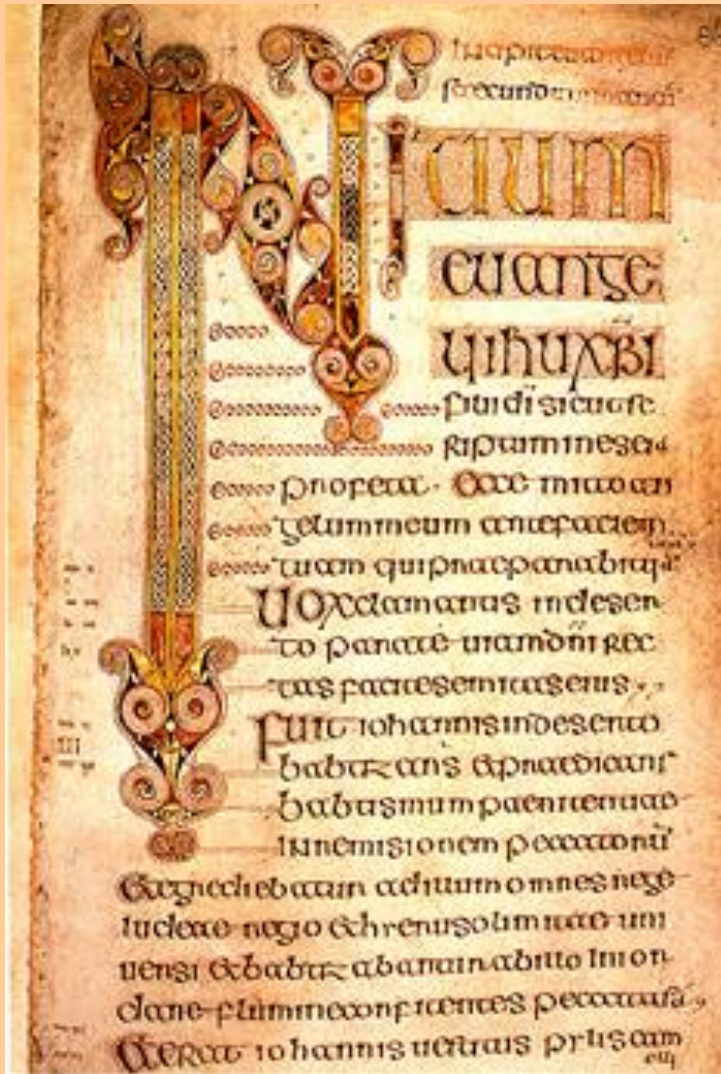 secundum
INItium
euange
lii ihu xpi
filii di sicut sc
riptum in esaia
profeta · Ecce mitto an
gelum meum ante faciem
tuam qui praeparabit
Uox clamantis in deser
to parate uiam dni rec
tas facite semitas eius
fuit iohannis in deserto
babtizans & praedicans
babtismum paenitentiae
in remisionem peccatorū
& egrediebatur ad illum omnes
iudeae regio & hierusolimitae uni
uersi & babtizabantur ab illo in ior
dane flumine confitentes peccata sua
& erat iohannis uestitus pilis cam
elli